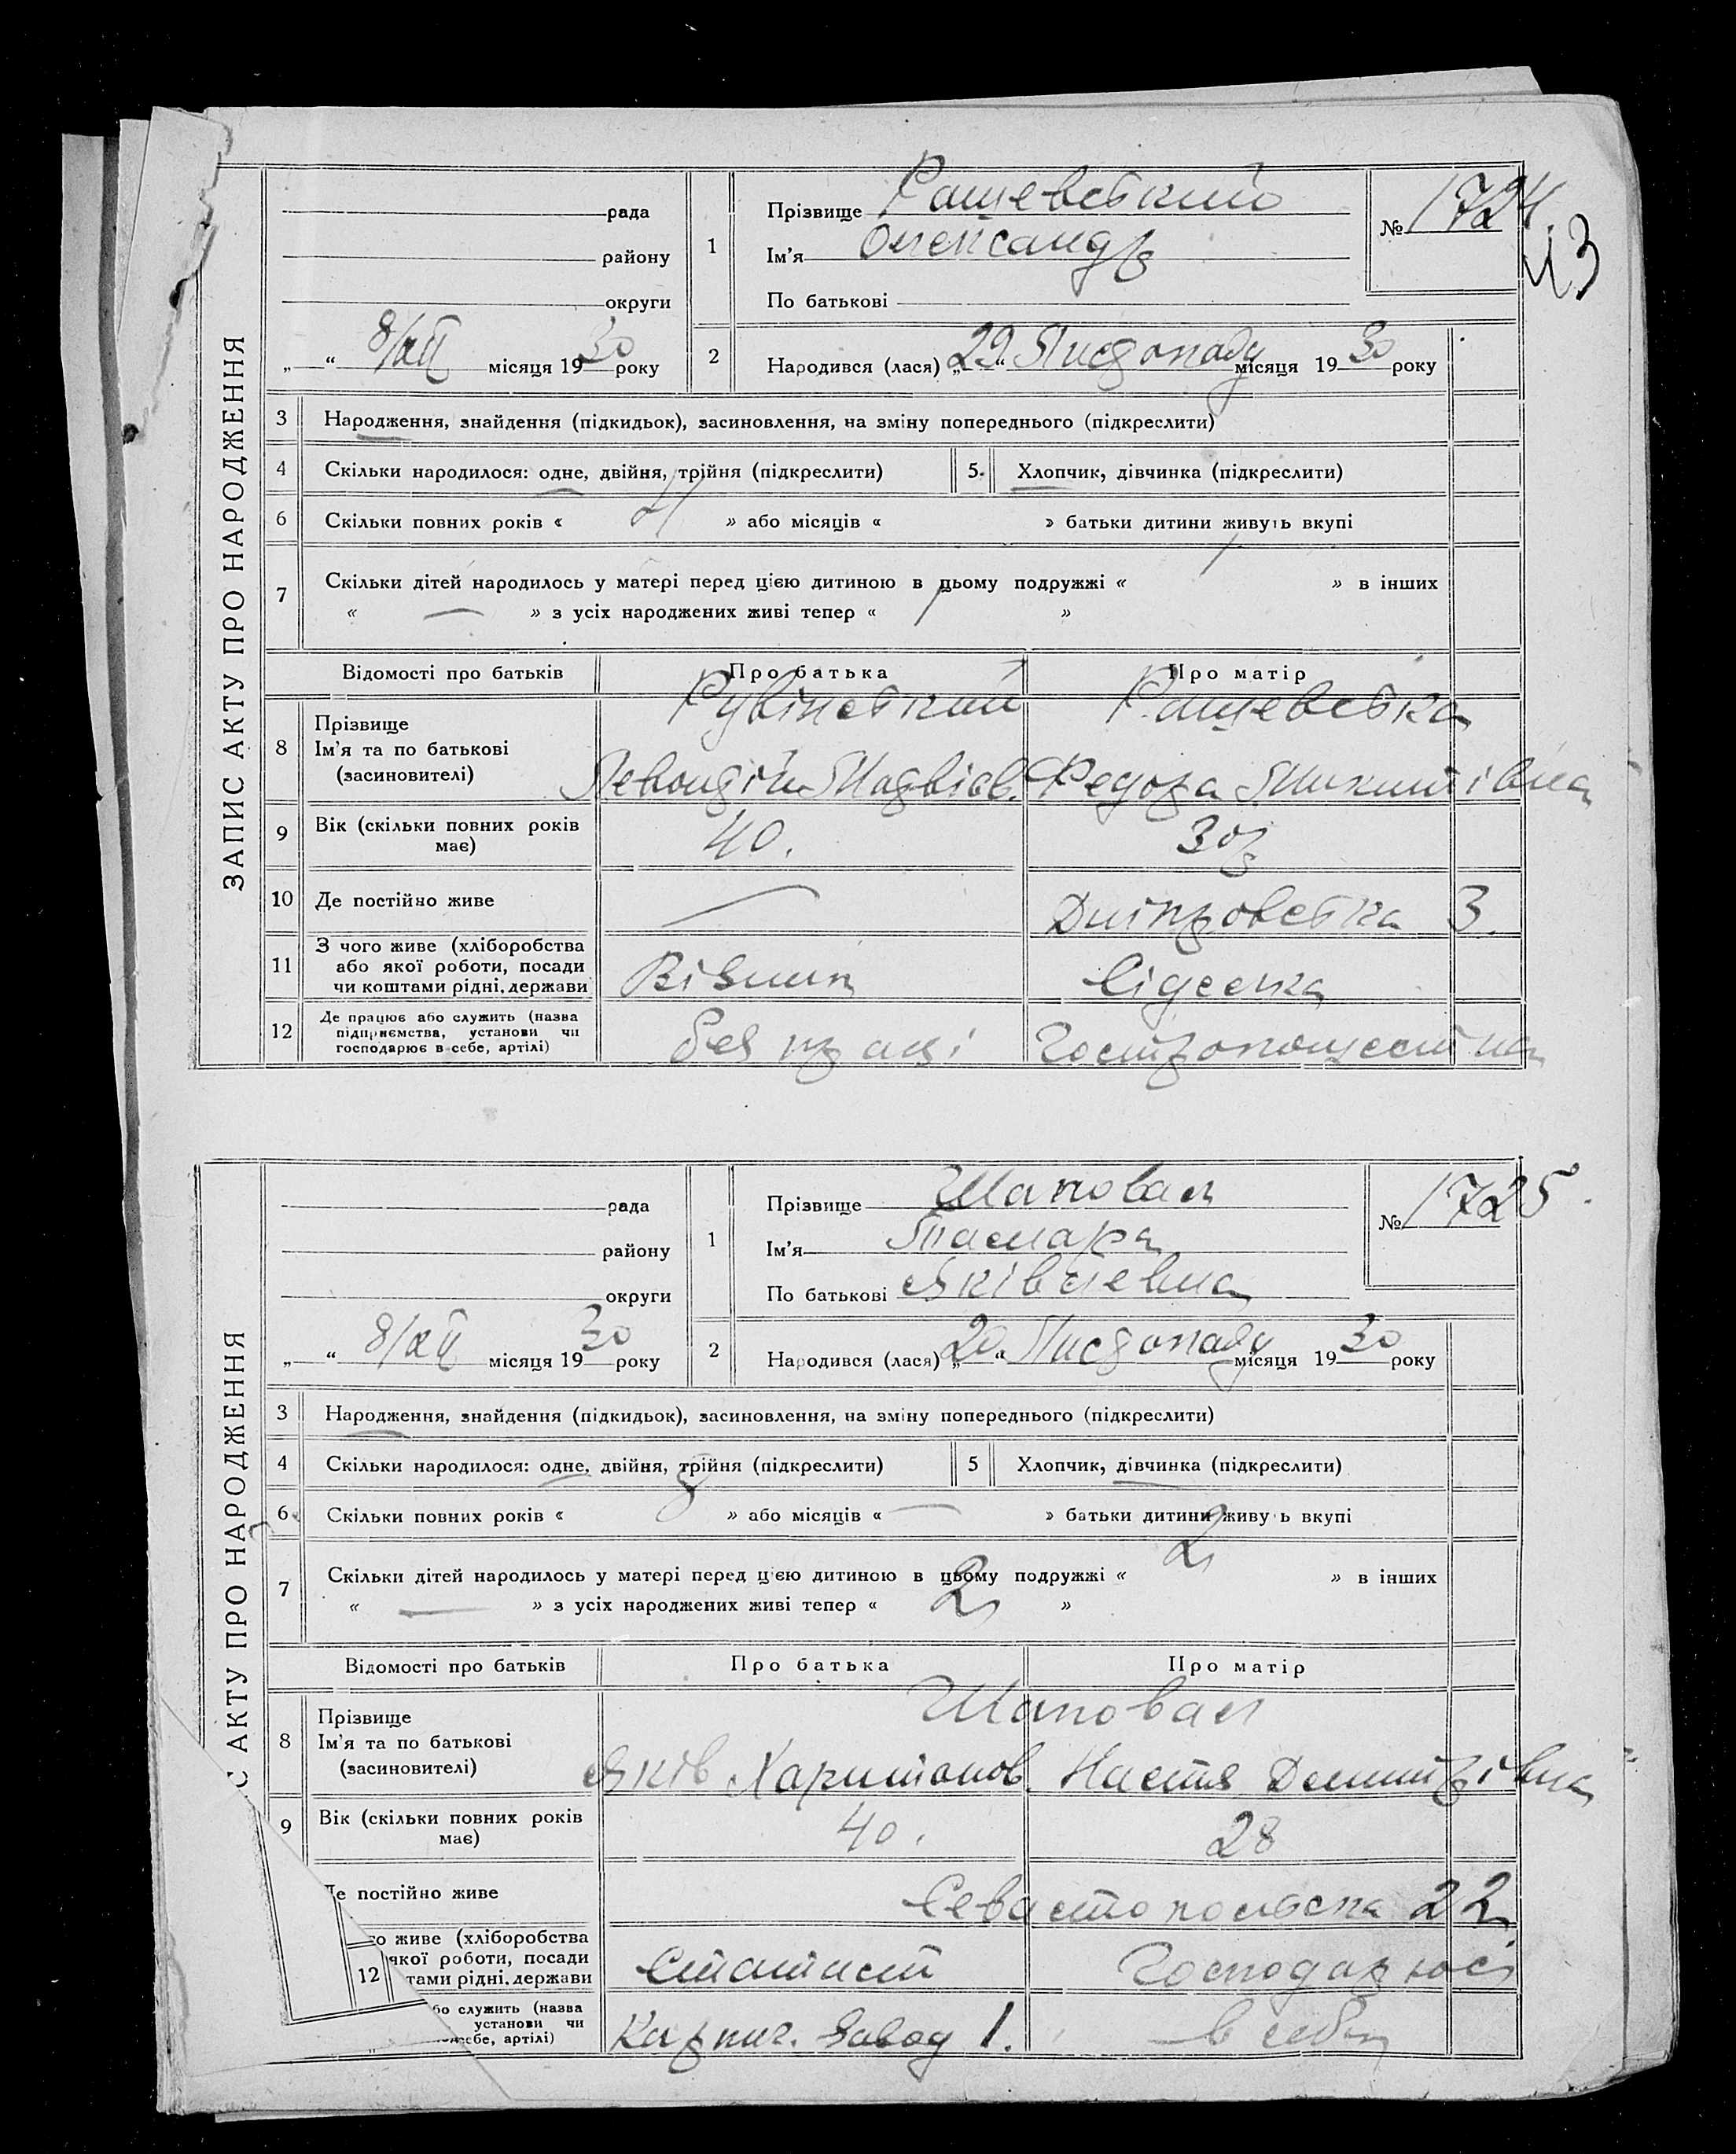 ЗАПИС АКТУ ПРО НАРОДЖЕННЯ
рада
району
округи
„ “ 8/XII місяця 1930 року
1
Прізвище Рашевський
Ім'я Олександр
По батькові
№ 1724.
43
2
Народився (лася) „29“ Листопаду місяця 1930 року
3 Народження, знайдення (підкидьок), засиновлення, на зміну попереднього (підкреслити)
4 Скільки народилося: одне, двійня, трійня (підкреслити) 5. Хлопчик, дівчинка (підкреслити)
6 Скільки повних років « » або місяців « » батьки дитини живуть вкупі
7 Скільки дітей народилось у матері перед цією дитиною в цьому подружжі « 1 » в інших
« — » з усіх народжених живі тепер « 1 »
Відомості про батьків Про батька Про матір
8 Прізвище
Ім'я та по батькові
(засиновителі)
Рувінський Рашевська
Левондій Матвієв. Федора Микитівна
9 Вік (скільки повних років має) 40. 30р
10 Де постійно живе — Дніпровська 3.
11 З чого живе (хліборобства
або якої роботи, посади
чи коштами рідні, держави
Візник Сіделка
12 Де працює або служить (назва
підприємства, установи чи
господарює в себе, артілі)
без праці
ЗАПИС АКТУ ПРО НАРОДЖЕННЯ
рада
району
округи
„ “ 8/XII місяця 1930 року
1
Прізвище Шаповал
Ім'я Тамара
По батькові Яківлевна
№ 1725.
2
Народився (лася) „20“ Листопаду місяця 1930 року
3 Народження, знайдення (підкидьок), засиновлення, на зміну попереднього (підкреслити)
4 Скільки народилося: одне, двійня, трійня (підкреслити) 5 Хлопчик, дівчинка (підкреслити)
6 Скільки повних років « » або місяців « — » батьки дитини живуть вкупі
7 Скільки дітей народилось у матері перед цією дитиною в цьому подружжі « 2 » в інших
« — » з усіх народжених живі тепер « 2 »
Відомості про батьків Про батька Про матір
8 Прізвище
Ім'я та по батькові
(засиновителі)
Шаповал
Яків Харитонов. Настя Дмитрівна
9 Вік (скільки повних років має) 40. 28
Де постійно живе Севастопольска 22
го живе (хліборобства
якої роботи, посади
тами рідні, держави
Статист Господарює
12
бо служить (назва
установи чи
себе, артілі)
Кирпич. Завод 1. в себе